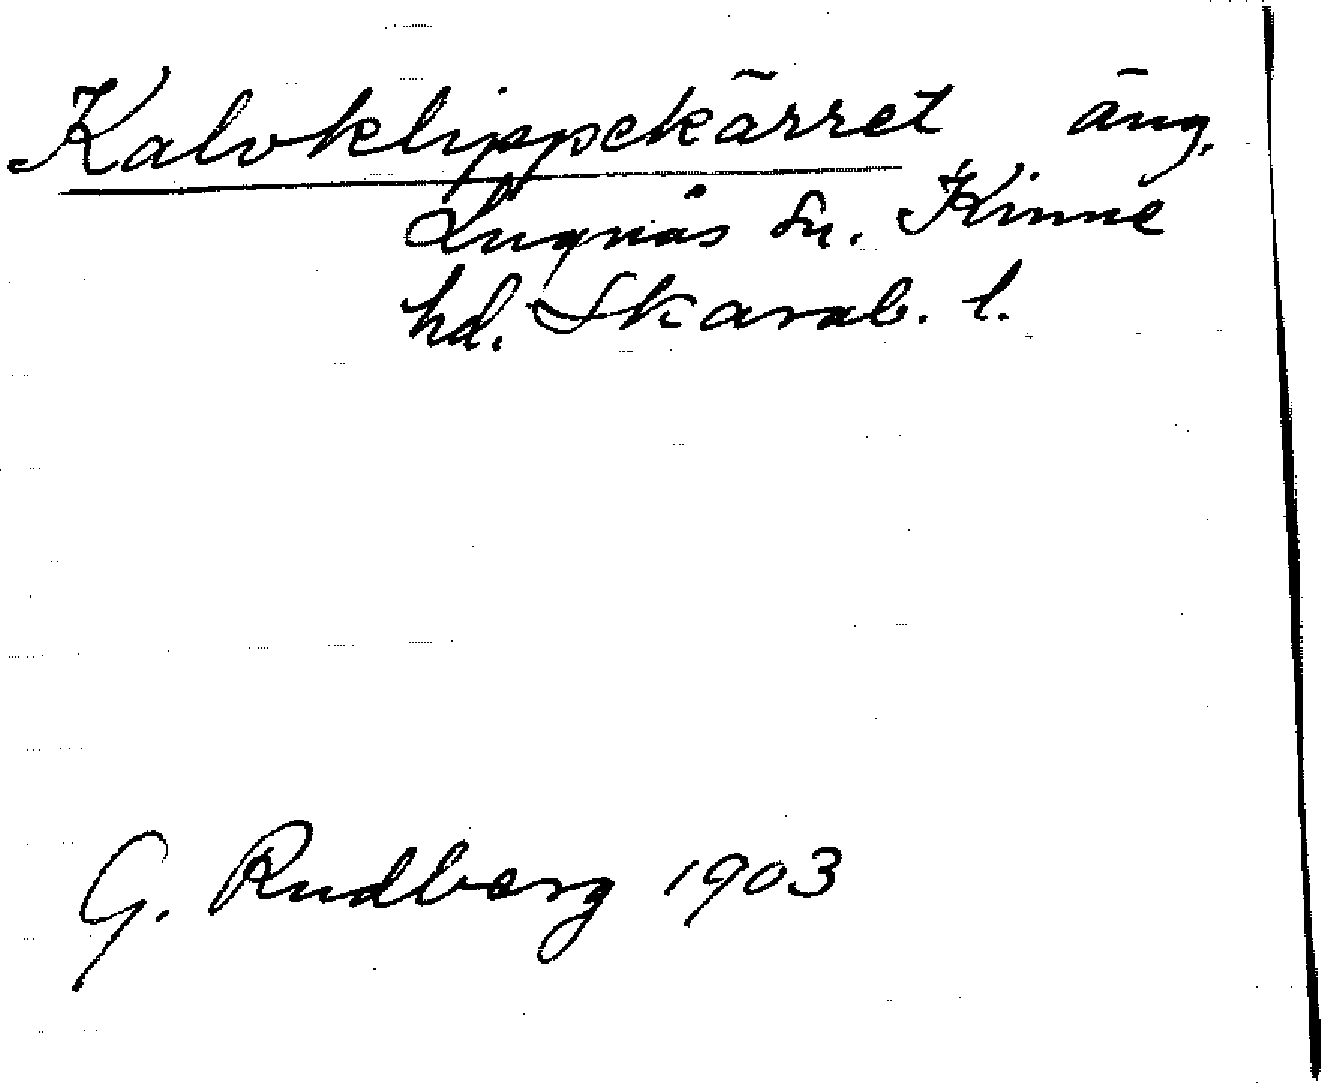 Kalvklippekärret äng.
Lugnås sn. Kinne
hd. Skarab. l.
G. Rudberg 1903